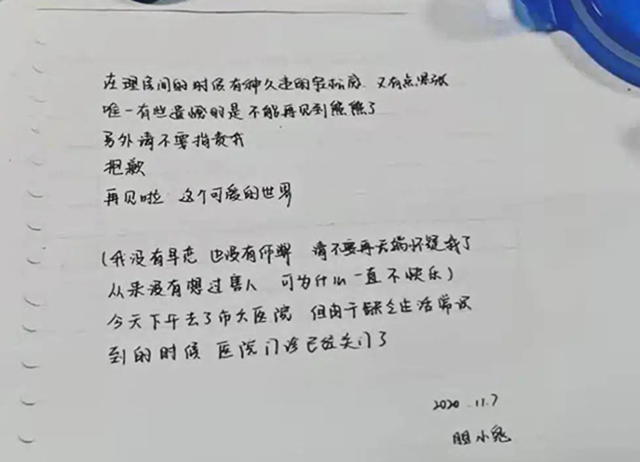 在理房间的时候有种久违的轻松感 又有点紧张
唯一有些遗憾的是不能再见到熊熊了
另外请不要指责我
抱歉
再见啦 这个可爱的世界
(我没有早恋 也没有作弊 请不要再无端怀疑我了
从来没有想过害人 可为什么一直不快乐)
今天下午去了市大医院 但由于缺乏生活常识
到的时候 医院门诊已经关门了
2020.11.7
胆小鬼